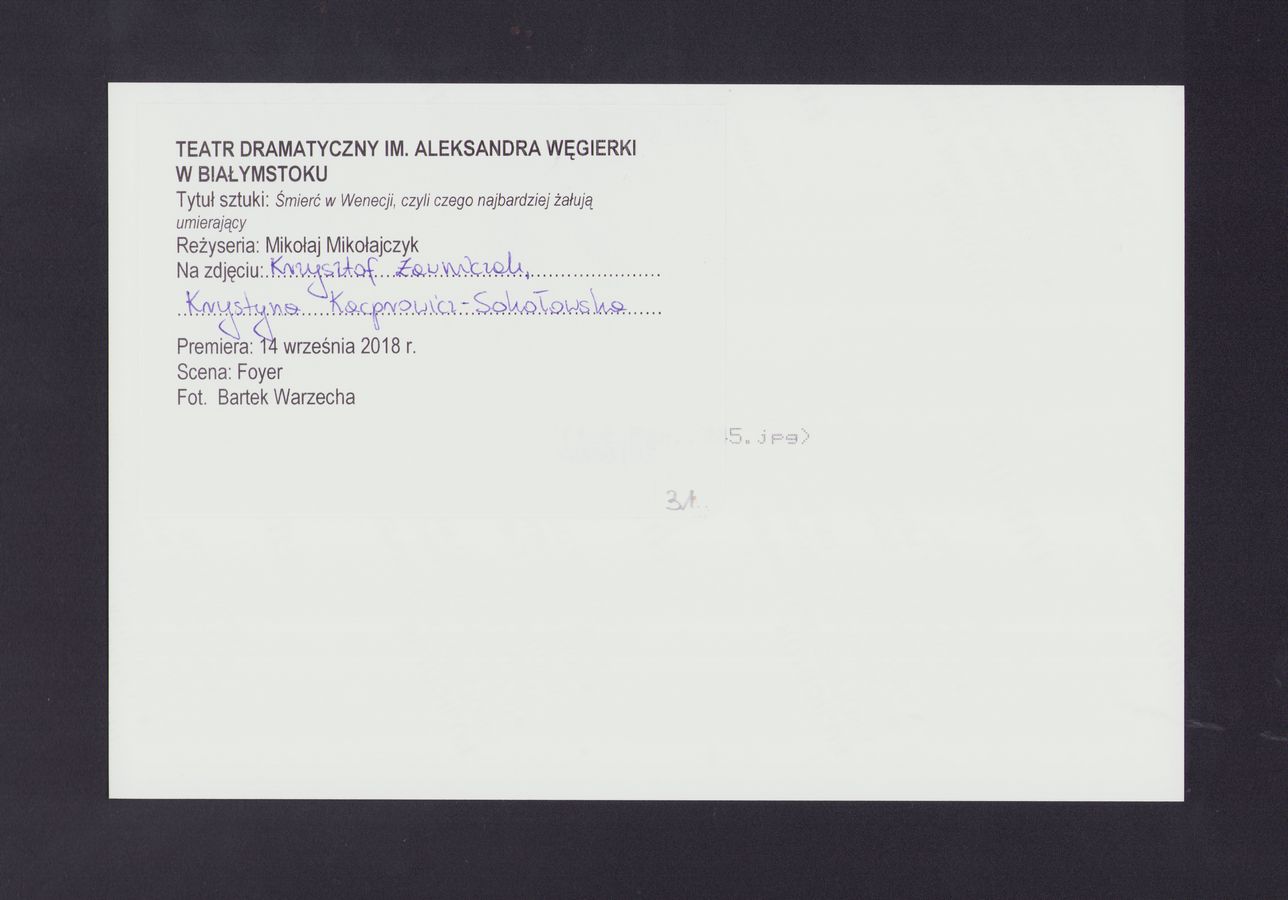 TEATR DRAMATYCZNY IM. ALEKSANDRA WĘGIERKI
W BIAŁYMSTOKU
Tytuł sztuki: Śmierć w Wenecji, czyli czego najbardziej żałują
umierający
Reżyseria: Mikołaj Mikołajczyk
Na zdjęciu: Krzysztof Ławniczak,
Krystyna Kacprowicz-Sokołowska
Premiera: 14 września 2018 r.
Scena: Foyer
Fot. Bartek Warzecha
5.jpg)
31.